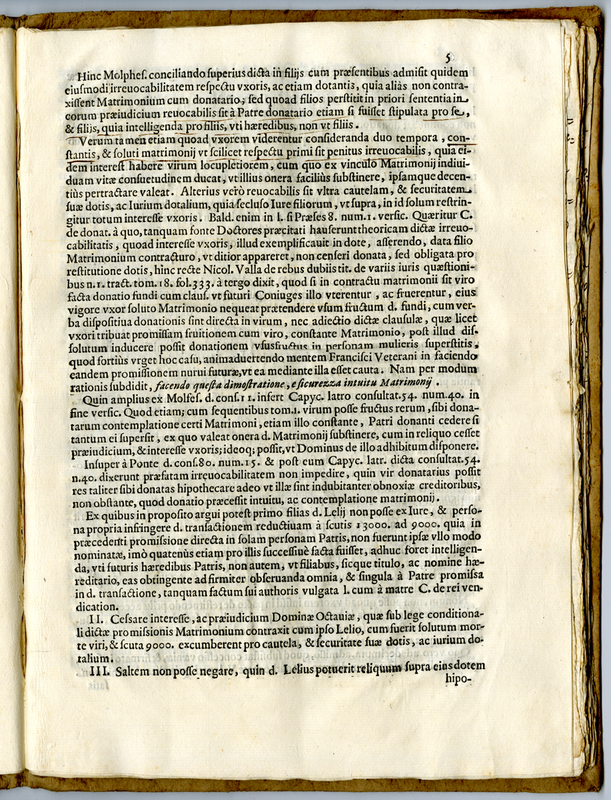 5
Hinc Molphes. conciliando superius dicta in filijs cum præsentibus admisit quidem
eiusmodi irreuocabilitatem respectu vxoris, ac etiam dotantis, quia aliàs non contra-
xissent Matrimonium cum donatario, sed quoad filios perstitit in priori sententia in
eorum præiudicium reuocabilis sit à Patre donatario etiam si fuisset stipulata pro se,
& filijs, quia intelligenda pro filijs, vti hæredibus, non vt filiis.
Verum tamen etiam quoad vxorem viderentur consideranda duo tempora, con-
stantis, & soluti matrimonij vt scilicet respectu primi sit penitus irreuocabilis, quia ei-
dem interest habere virum locupletiorem, cum quo ex vinculo Matrimonij indiui-
duam vitæ consuetudinem ducat, vt illius onera facilius substinere, ipsamque decen-
tiùs pertractare valeat. Alterius verò reuocabilis sit vltra cautelam, & securitatem
suæ dotis, ac Iurium dotalium, quia secluso Iure filiorum, vt supra, in id solum restrin-
gitur totum interesse vxoris. Bald. enim in l. si Præses 8. num. 1. versic. Quæritur C.
de donat. à quo, tanquam fonte Doctores præcitati hauserunt theoricam dictæ irreuo-
cabilitatis, quoad interesse vxoris, illud exemplificauit in dote, asserendo, data filio
Matrimonium contracturo, vt ditior appareret, non censeri donata, sed obligata pro
restitutione dotis, hinc recte Nicol. Valla de rebus dubiis tit. de variis iuris quæstioni-
bus n. 1. tract. tom. 18. fol. 333. à tergo dixit, quod si in contractu matrimonii sit viro
facta donatio fundi cum claus. vt futuri Coniuges illo vterentur, ac fruerentur, eius
vigore vxor soluto Matrimonio nequeat prætendere vsum fructum d. fundi, cum ver-
ba dispositiua donationis sint directa in virum, nec adiectio dictæ clausulæ, quæ licet
vxori tribuat promissam fruitionem cum viro, constante Matrimonio, post illud dis-
solutum inducere possit donationem vsusfructus in personam mulieris superstitis,
quod fortiùs vrget hoc casu, animaduertendo mentem Francisci Veterani in faciendo
eandem promissionem nurui futuræ, vt ea mediante illa esset cauta. Nam per modum
rationis subdidit, facendo questa dimostratione, e sicurezza intuitu Matrimonij.
Quin amplius ex Molfes. d. cons. 11. insert Capyc. latro consultat. 54. num. 40. in
fine versic. Quod etiam; cum sequentibus tom. 1. virum posse fructus rerum, sibi dona-
tarum contemplatione certi Matrimoni, etiam illo constante, Patri donanti cedere si
tantum ei supersit, ex quo valeat onera d. Matrimonij substinere, cum in reliquo cesset
præiudicium, & interesse vxoris; ideoq; possit, vt Dominus de illo adhibitum disponere.
Insuper à Ponte d. cons. 80. num. 15. & post eum Capyc. latr. dicta consultat. 54.
n. 40. dixerunt præfatam irreuocabilitatem non impedire, quin vir donatarius possit
res taliter sibi donatas hypothecare adeo vt illæ sint indubitanter obnoxiæ creditoribus,
non obstante, quod donatio præcessit intuitu, ac contemplatione matrimonij.
Ex quibus in proposito argui potest primo filias d. Lelij non posse ex Iure, & perso-
na propria infringere d. transactionem reductiuam à scutis 13000. ad 9000. quia in
præcedenti promissione directa in solam personam Patris, non fuerunt ipsæ vllo modo
nominatæ, imò quatenùs etiam pro illis successiuè facta fuisset, adhuc foret intelligen-
da, vti futuris hæredibus Patris, non autem, vt filiabus, sicque titulo, ac nomine hæ-
reditario, eas obtingente ad firmiter obseruanda omnia, & singula à Patre promissa
in d. transactione, tanquam factum sui authoris vulgata l. cum à matre C. de rei ven-
dication.
II. Cessare interesse, ac præiudicium Dominæ Octauiæ, quæ sub lege conditiona-
li dictæ promissionis Matrimonium contraxit cum ipso Lelio, cum fuerit solutum mor-
te viri, & scuta 9000. excumberent pro cautela, & securitate suæ dotis, ac iurium do-
talium.
III. Saltem non posse negare, quin d. Lelius potuerit reliquum supra eius dotem
hipo-